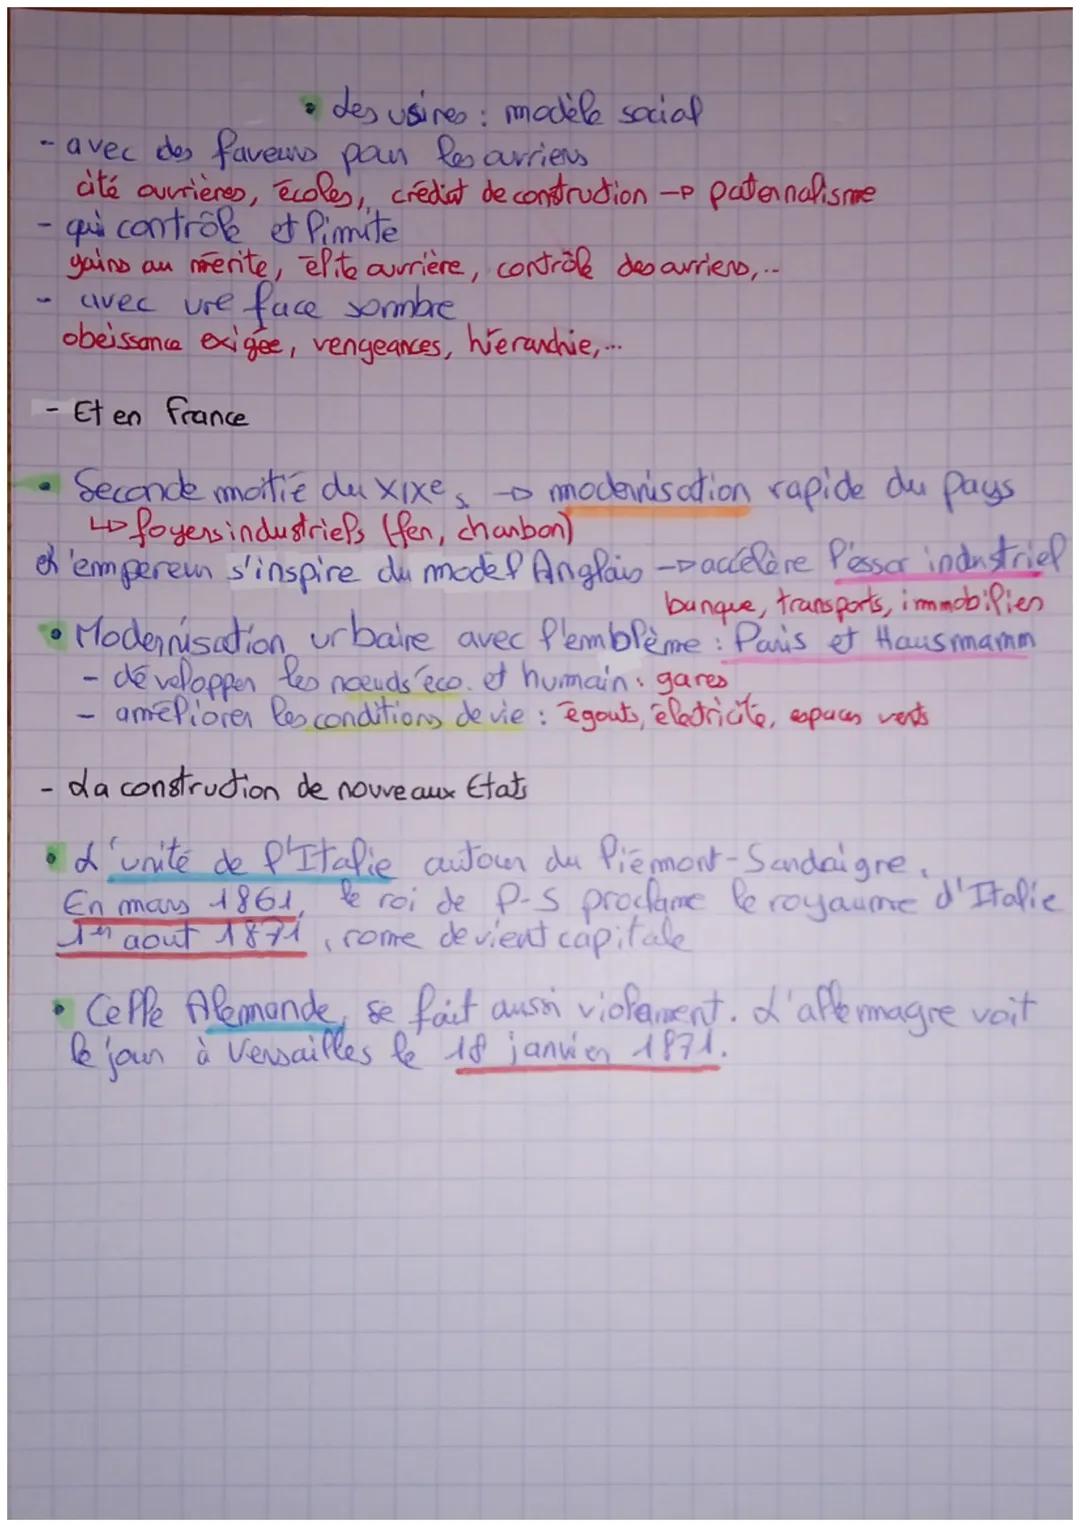 • des usines : modèle social
- avec des faveurs pour les ouvriers
cité ouvrières, écoles, crédit de construction → paternalisme
- qui contrôle et limite
gains au mérite, élite ouvrière, contrôle des ouvriers,...
- avec une face sombre
obeissance exigée, vengeances, hiérarchie,...
- Et en France
• Seconde moitié du XIXe s → modernisation rapide du pays
↳ foyers industriels (fer, charbon)
L'empereur s'inspire du model Anglais → accélère l'essor industriel
banque, transports, immobilier
• Modernisation urbaine avec l'emblème : Paris et Hausmann
- développer les noeuds éco. et humain : gares
- améliorer les conditions de vie : égouts, électricité, espaces verts
- La construction de nouveaux Etats
• L'unité de l'Italie autour du Piémont-Sardaigne.
En mars 1861, le roi de P-S proclame le royaume d'Italie
1er aout 1871, rome devient capitale
• Celle Alemande, se fait aussi violament. L'allemagne voit
le jour à Versailles le 18 janvier 1871.